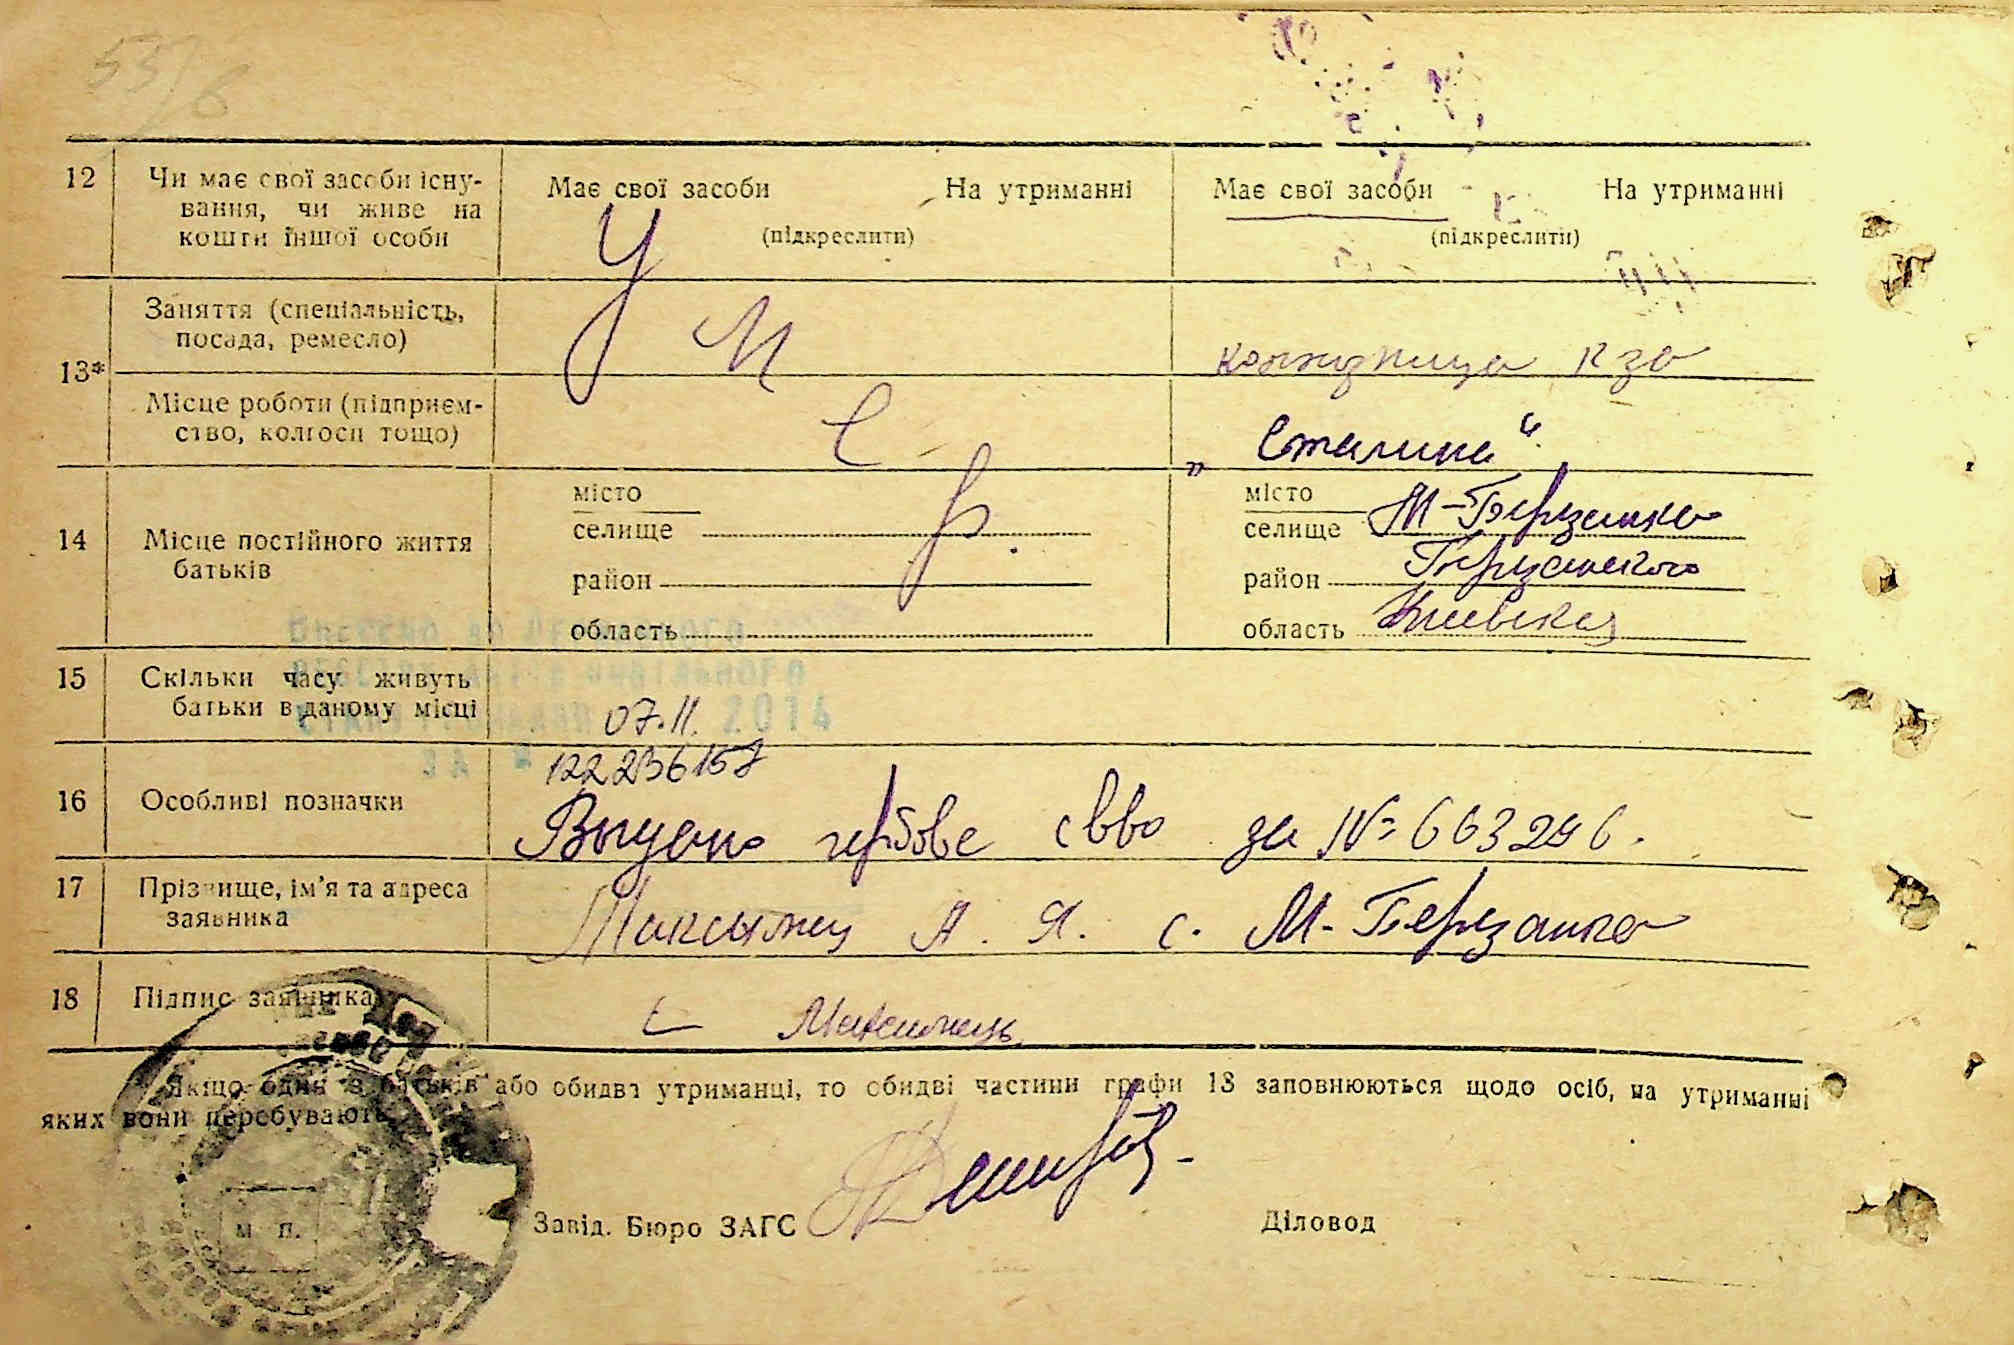 53/6
12 Чи має свої засоби існу- Має свої засоби На утриманні Має свої засоби На утриманні
вання, чи живе на
кошти іншої особи (підкреслити) (підкреслити)
Заняття (спеціальність,
посада, ремесло)
13*
Місце роботи (підприєм-
ство, колгосп тощо) „Сталина“
У М Е Р.
місто місто
селище селище М-Березанка
14 Місце постійного життя
батьків
район район Березанского
область область Киевская
ВНЕСЕНО ДО ДЕРЖАВНОГО
РЕЄСТРУ АКТІВ ЦИВІЛЬНОГО
15 Скільки часу живуть
батьки в даному місці
07.11. 2014
ЗА №
122236157
16 Особливі позначки Выдано гербове св-во за № 663296.
17 Прізвище, ім'я та адреса
заявника
Максимец А. Я. с. М-Березанка
18 Підпис заявника Максимець
Якщо один з батьків або обидва утриманці, то обидві частини графи 13 заповнюються щодо осіб, на утриманні
яких вони перебувають.
м п.
Завід. Бюро ЗАГС Діловод